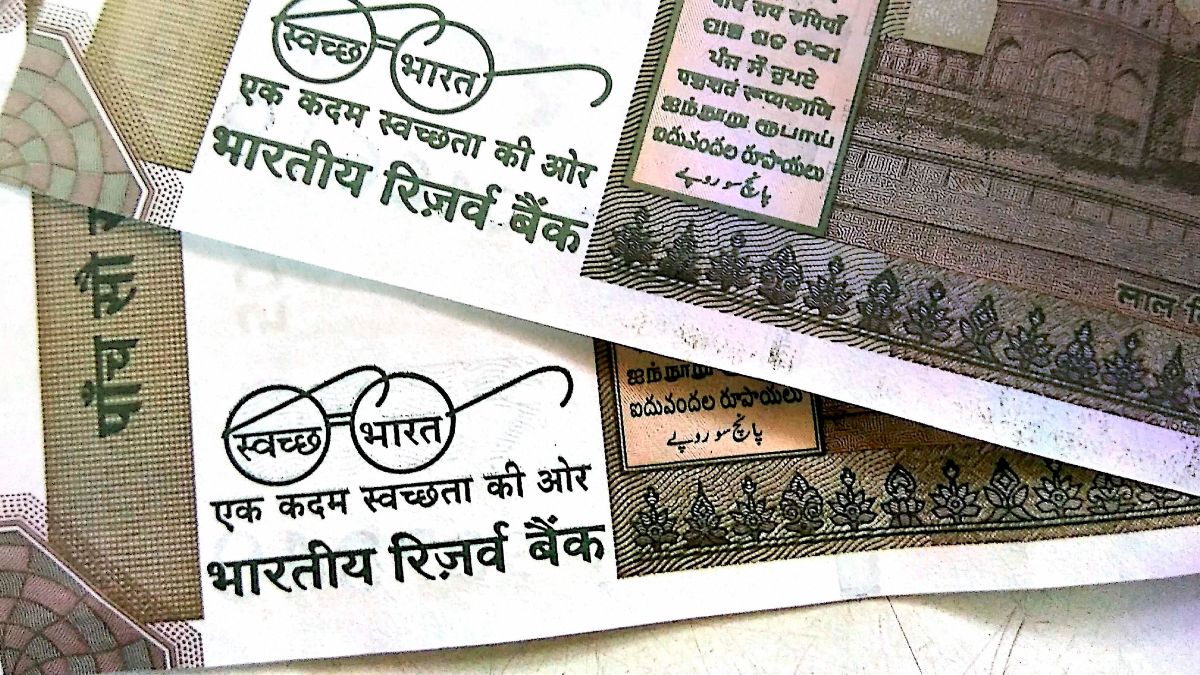 स्वच्छ भारत
एक कदम स्वच्छता की ओर
भारतीय रिज़र्व बैंक
सय रुपियाँ
ପାଞ୍ଚ ଶତ ଟଙ୍କା
ਪੰਜ ਸੌ ਰੁਪਏ
पञ्चशतं रूप्यकाणि
ஐந்நூறு ரூபாய்
ఐదువందల రూపాయలు
پانچ سو روپے
लाल
पाँच सौ
स्वच्छ भारत
एक कदम स्वच्छता की ओर
भारतीय रिज़र्व बैंक
ఐదువందల రూపాయలు
پانچ سو روپے